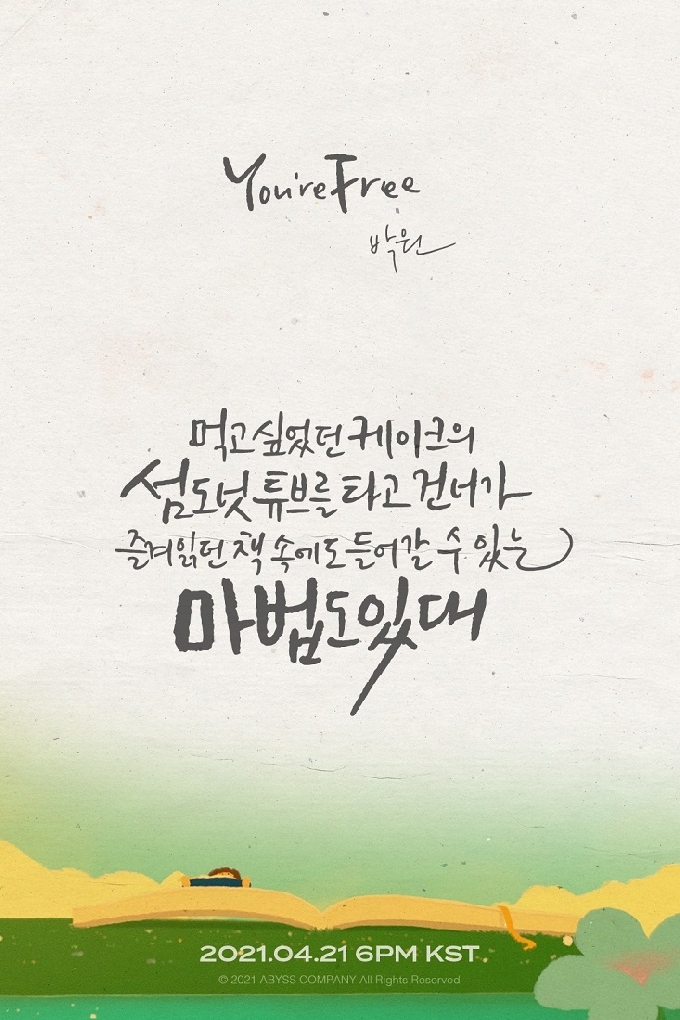 You're Free
박원
먹고 싶었던 케이크의
섬 도넛 튜브를 타고 건너가
즐겨 읽던 책 속에도 들어갈 수 있는
마법도 있대
2021.04.21 6PM KST
© 2021 ABYSS COMPANY All Rights Reserved